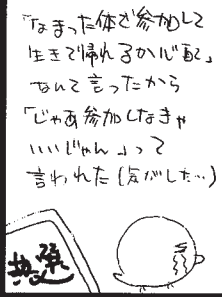 「なまった体で参加して
生きて帰れるか心配」
なんて言ったから
「じゃあ参加しなきゃ
いいじゃん」って
言われた(気がした…)